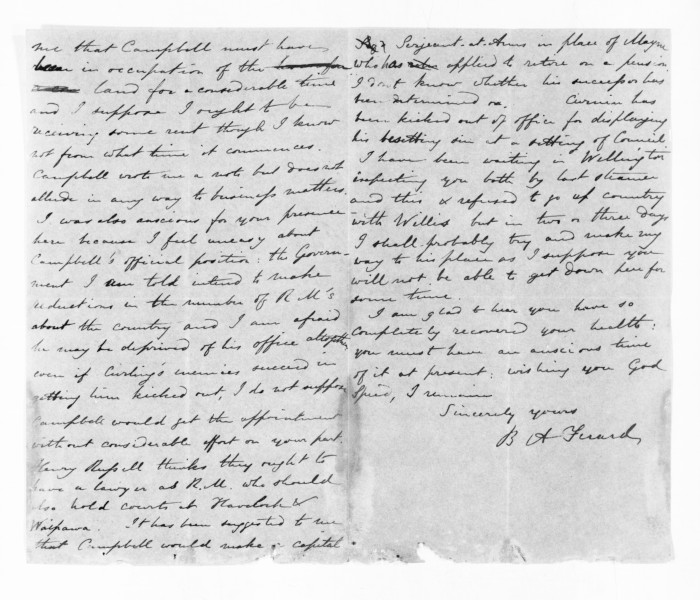 me that Campbell must have
been in occupation of the
land for a considerable time
and I suppose I ought to be
receiving some rent though I know
not from what time it commences.
Campbell wrote me a note but does not
allude in any way to business matters.
I was also anxious for your presence
here because I feel uneasy about
Campbell's official position: the Govern-
ment I am told intend to make
reductions in the number of R.M's
about the country and I am afraid
he may be deprived of his office altogether
even if Curling's enemies succeed in
getting him kicked out, I do not suppose
Campbell would get the appointment
without considerable effort on your part.
Henry Russell thinks they ought to
have a lawyer as R.M. who should
also hold courts at Havelock &
Waipawa. It has been suggested to me
that Campbell would make a capital
Sergeant-at-Arms in place of Mayne
who has applied to retire on a pension
I don't know whether his successor has
been determined on. has
been kicked out of office for displaying
his besetting sin at a sitting of Council
I have been waiting in Wellington
expecting you both by last steamer
and this & refused to go up country
with Willis but in two or three days
I shall probably try and make my
way to his place as I suppose you
will not be able to get down here for
some time.
I am glad to hear you have so
completely recovered your health:
you must have an anxious time
of it at present: wishing you God
Speed, I remain
Sincerely yours
B A Ferard